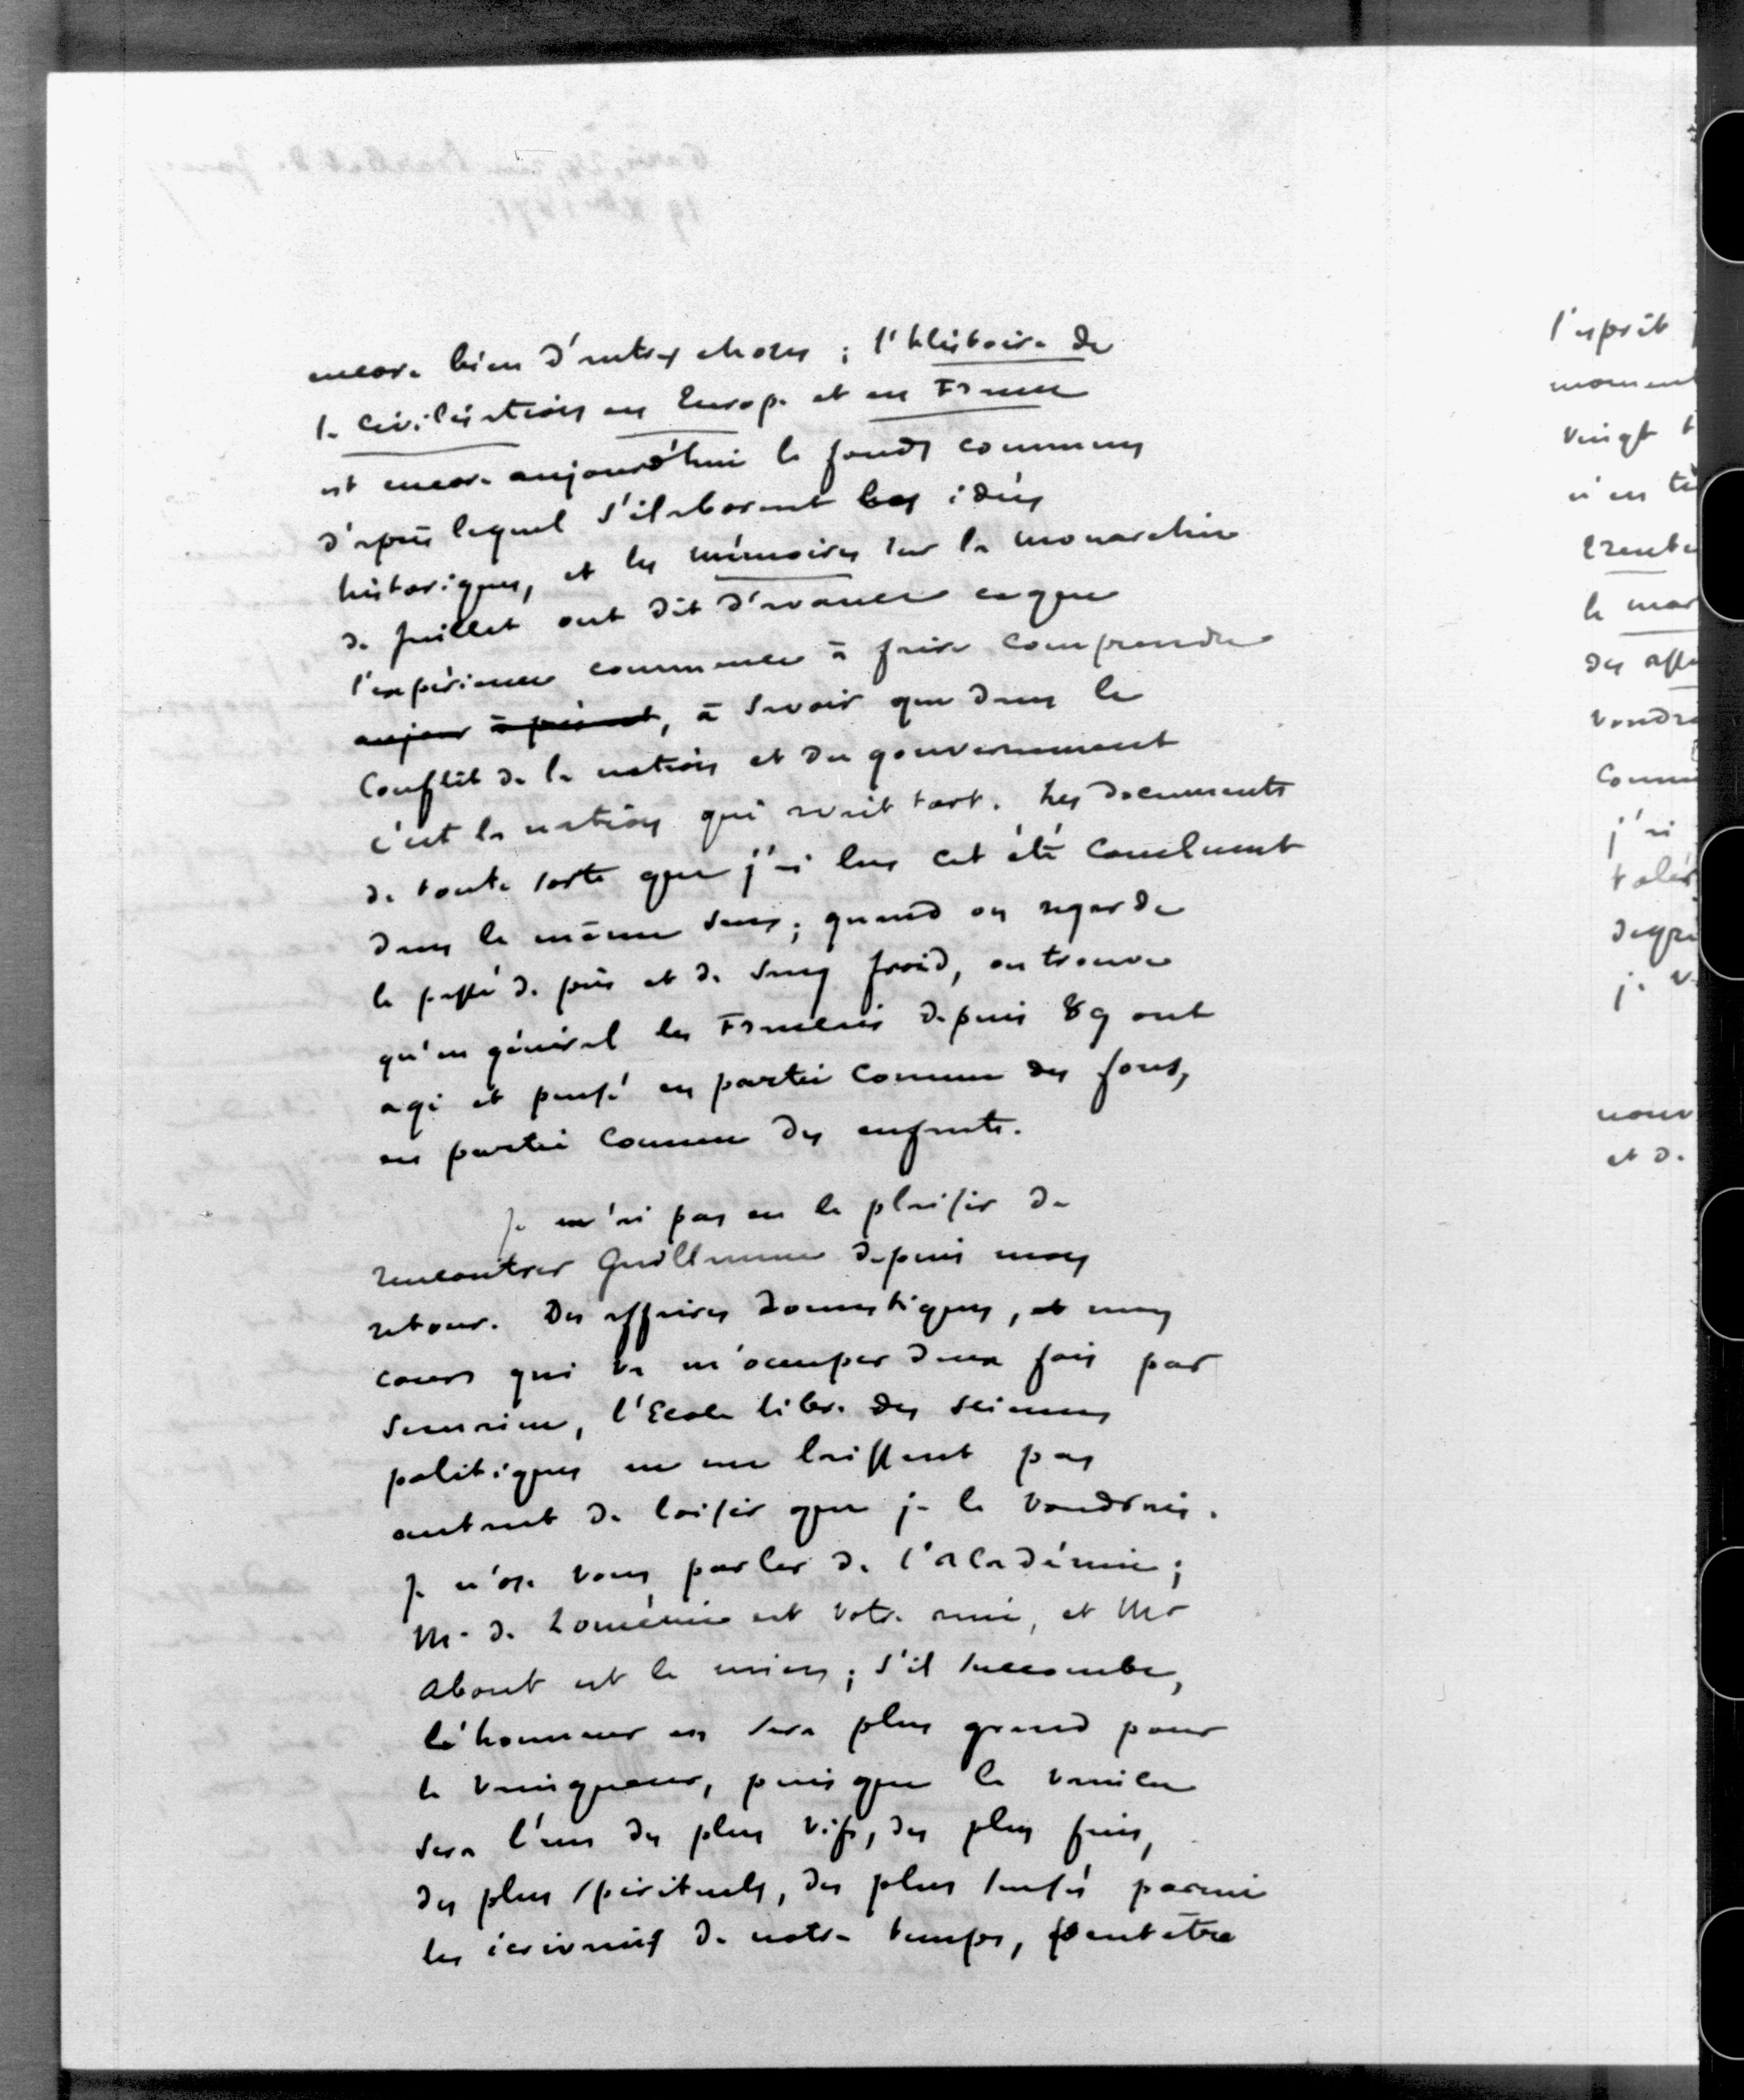 encore bien d'autres choses ; l'histoire de
la civilisation en Europe et en France
est encore aujourd'hui le fonds commun
d'après lequel s'élaborent les idées
historiques, et les mémoires sur la monarchie
de Juillet ont dit d'avance ce que
l'expérience commence à faire comprendre
aujour à présent, à savoir que dans le
conflit de la nation et du gouvernement
c'est la nation qui avait tort. Les documents
de toute sorte que j'ai lus cet été concluent
dans le même sens ; quand on regarde
le passé de près et de sang froid, on trouve
qu'en général les Français depuis 89 ont
agi et pensé en partie comme des fous,
en partie comme des enfants.
Je n'ai pas eu le plaisir de
rencontrer Guillaume depuis mon
retour. Des affaires domestiques, et mon
cours qui va m'occuper deux fois par
semaine, l'Ecole libre des sciences
politiques ne me laissent pas
autant de loisir que je le voudrais.
Je n'ose vous parler de l'académie ;
Mr de Loménie est votre ami, et Mr
About est le mien ; s'il succombe,
l'honneur en sera plus grand pour
le vainqueur, puisque le vaincu
sera l'un des plus vifs, des plus fins,
des plus spirituels, des plus sensés parmi
les écrivains de notre temps, peut être
l'esprit
moment
vingt
le mar
des
j'ai
et de